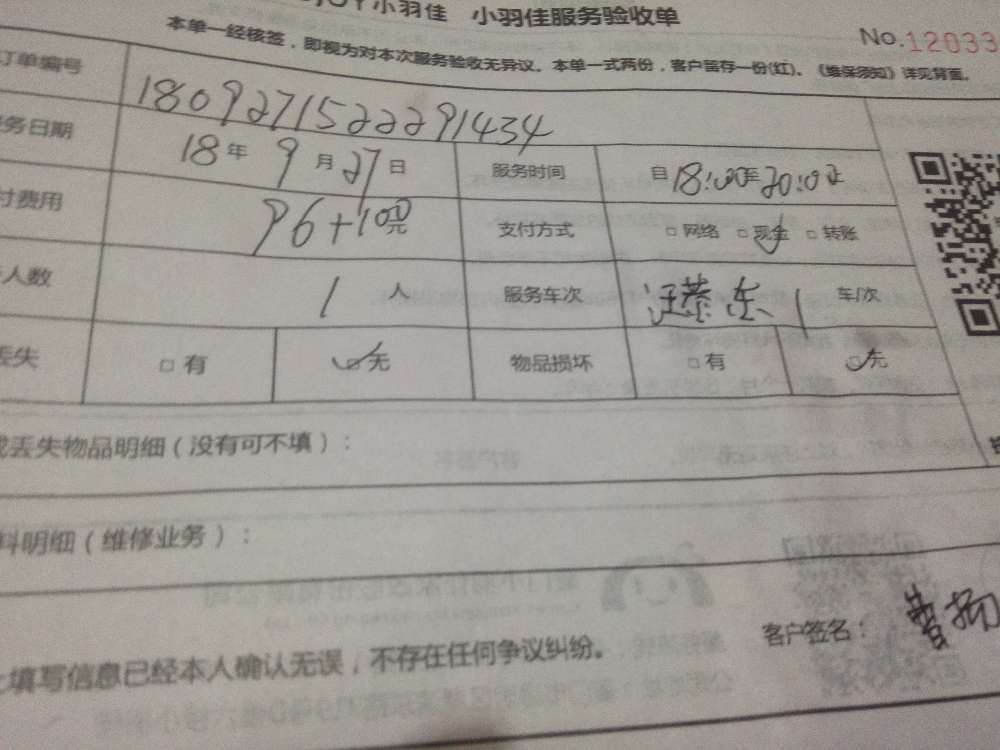 小羽佳 小羽佳服务验收单
No.12033
本单一经核签，即视为对本次服务验收无异议。本单一式两份，客户留存一份(红)。《维保须知》详见背面。
订单编号 1809271522291434
务日期 18年 9月27日 服务时间 自18:00至20:00止
付费用 96+10元 支付方式 □网络 □现金 □转账
人数 1人 服务车次 1车/次
丢失 □有 无 物品损坏 □有 无
丢失物品明细（没有可不填）：
料明细（维修业务）：
客户签名：曹扬
填写信息已经本人确认无误，不存在任何争议纠纷。